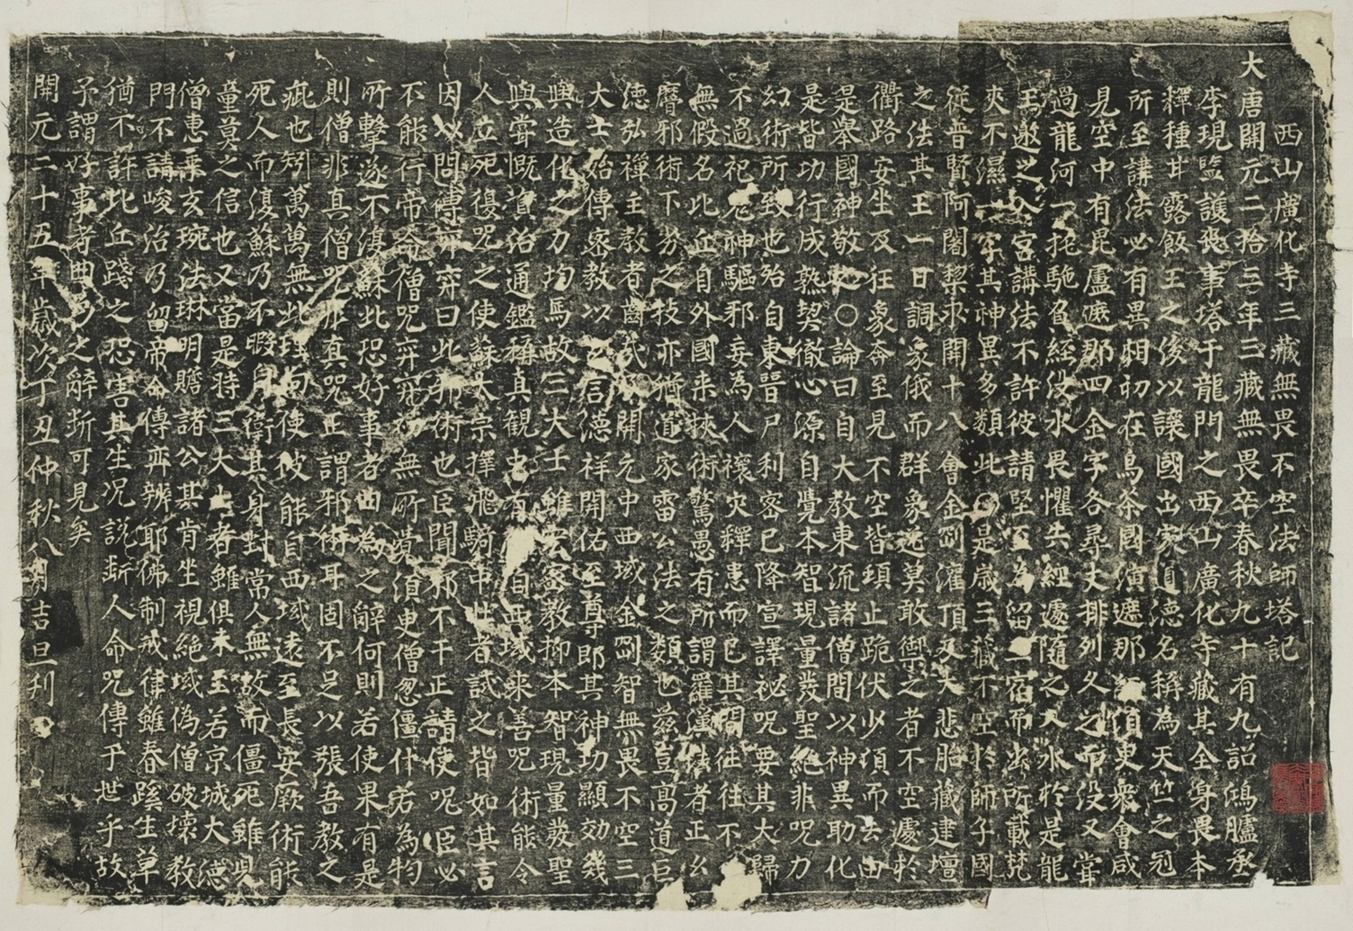 西山廣化寺三藏無畏不空法師塔記
大唐開元二拾三年三藏無畏卒春秋九十有九詔鴻臚丞
李現監護喪事塔于龍門之西山廣化寺藏其全身畏本
釋種甘露飯王之後以讓國出家道德名稱為天竺之冠
所至講法必有異相初在烏荼國演遮那經須臾眾會咸
見空中有毘盧遮那四金字各尋丈排列久之而沒又嘗
過龍河一托駞負經没水畏懼失經遽隨之入水於是龍
王邀之入宮講法不許彼請堅至為留三宿而出所載梵
夾不濕一字其神異多類此〇是歲三藏不空於師子國
從普賢阿闍梨求開十八會金剛灌頂及大悲胎藏建壇
之法其王一日調象俄而群象逸莫敢禦之者不空遽於
衢路安坐及狂象奔至見不空皆頓止跪伏少頃而去由
是舉國神敬之〇論曰自大教東流諸僧間以神異助化
是皆功行成熟契徹心源自覺本智現量發聖絕非呪力
幻術所致也殆自東晉尸利密已降宣譯祕呪要其大歸
不過祀鬼神驅邪妄為人禳灾釋患而已其間往往不
無假名比丘自外國来挾術驚愚有所謂羅漢法者正幺
麼邪術下劣之技亦猶道家雷公法之類也茲豈高道巨
德弘禪主教者齒哉開元中西域金剛智無畏不空三
大士始傳密教以玄言德祥開佑至尊即其神功顯効幾
與造化之力均焉故三大士雖云密教抑本智現量發聖
與嘗慨資治通鑑稱真觀中有僧自西域来善呪術能令
人立死復呪之使蘇太宗擇飛騎中壯者試之皆如其言
因以問傅弈弈曰此邪術也臣聞邪不干正請使呪臣必
不能行帝命僧呪弈弈初無所覺須臾僧忽僵仆若為物
所擊遂不復蘇此恐好事者曲為之辭何則若使果有是
則僧非真僧呪非真呪正謂邪術耳固不足以張吾教之
疵也矧萬萬無此理向使彼能自西域遠至長安厥術能
死人而復蘇乃不暇自衛其身對常人無故而僵死雖兒
童莫之信也又當是時三大士者雖俱未至若京城大德
僧惠乘玄琬法琳明贍諸公其肯坐視絕域偽僧破壞教
門不請峻治乃留帝命傳弈辨耶佛制戒律雖春蹊生草
猶不許比丘踐之恐害其生况說斷人命呪傳乎世乎故
予謂好事者曲為之辭斷可見矣
開元二十五年歲次丁丑仲秋八月吉旦刊